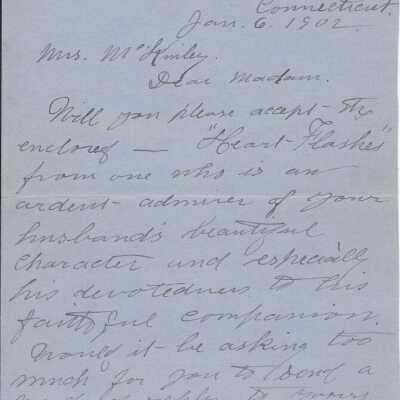 Connecticut.
Jan. 6. 1902.
Mrs. McKinley.
Dear Madam.
Will you please accept the
enclosed — "Heart-Flashes"
from one who is an
ardent admirer of your
husband's beautiful
character and especially
his devotedness to his
faithful companion.
Would it be asking too
much for you to send a
word of reply to yours